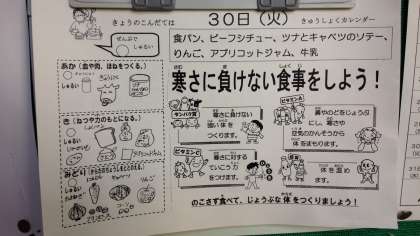 きょうのこんだては
30日(火)
きゅうしょくカレンダー
ぜんぶで
しゅるい
食パン、ビーフシチュー、ツナとキャベツのソテー、
りんご、アプリコットジャム、牛乳
あか(血や肉、ほねをつくる。)
しゅるい
寒さに負けない食事をしよう!
タンパク質
寒さに負けない
強い体を
つくります。
ビタミンA
鼻やのどをじょうぶ
にし、寒さや
空気のかんそうから
体をまもります。
き(ねつや力のもとになる。)
しゅるい
ビタミンC
寒さに対する
ていこう力を
つけます。
体を温め
ます。
しゅるい
のこさず食べて、じょうぶな体をつくりましょう!